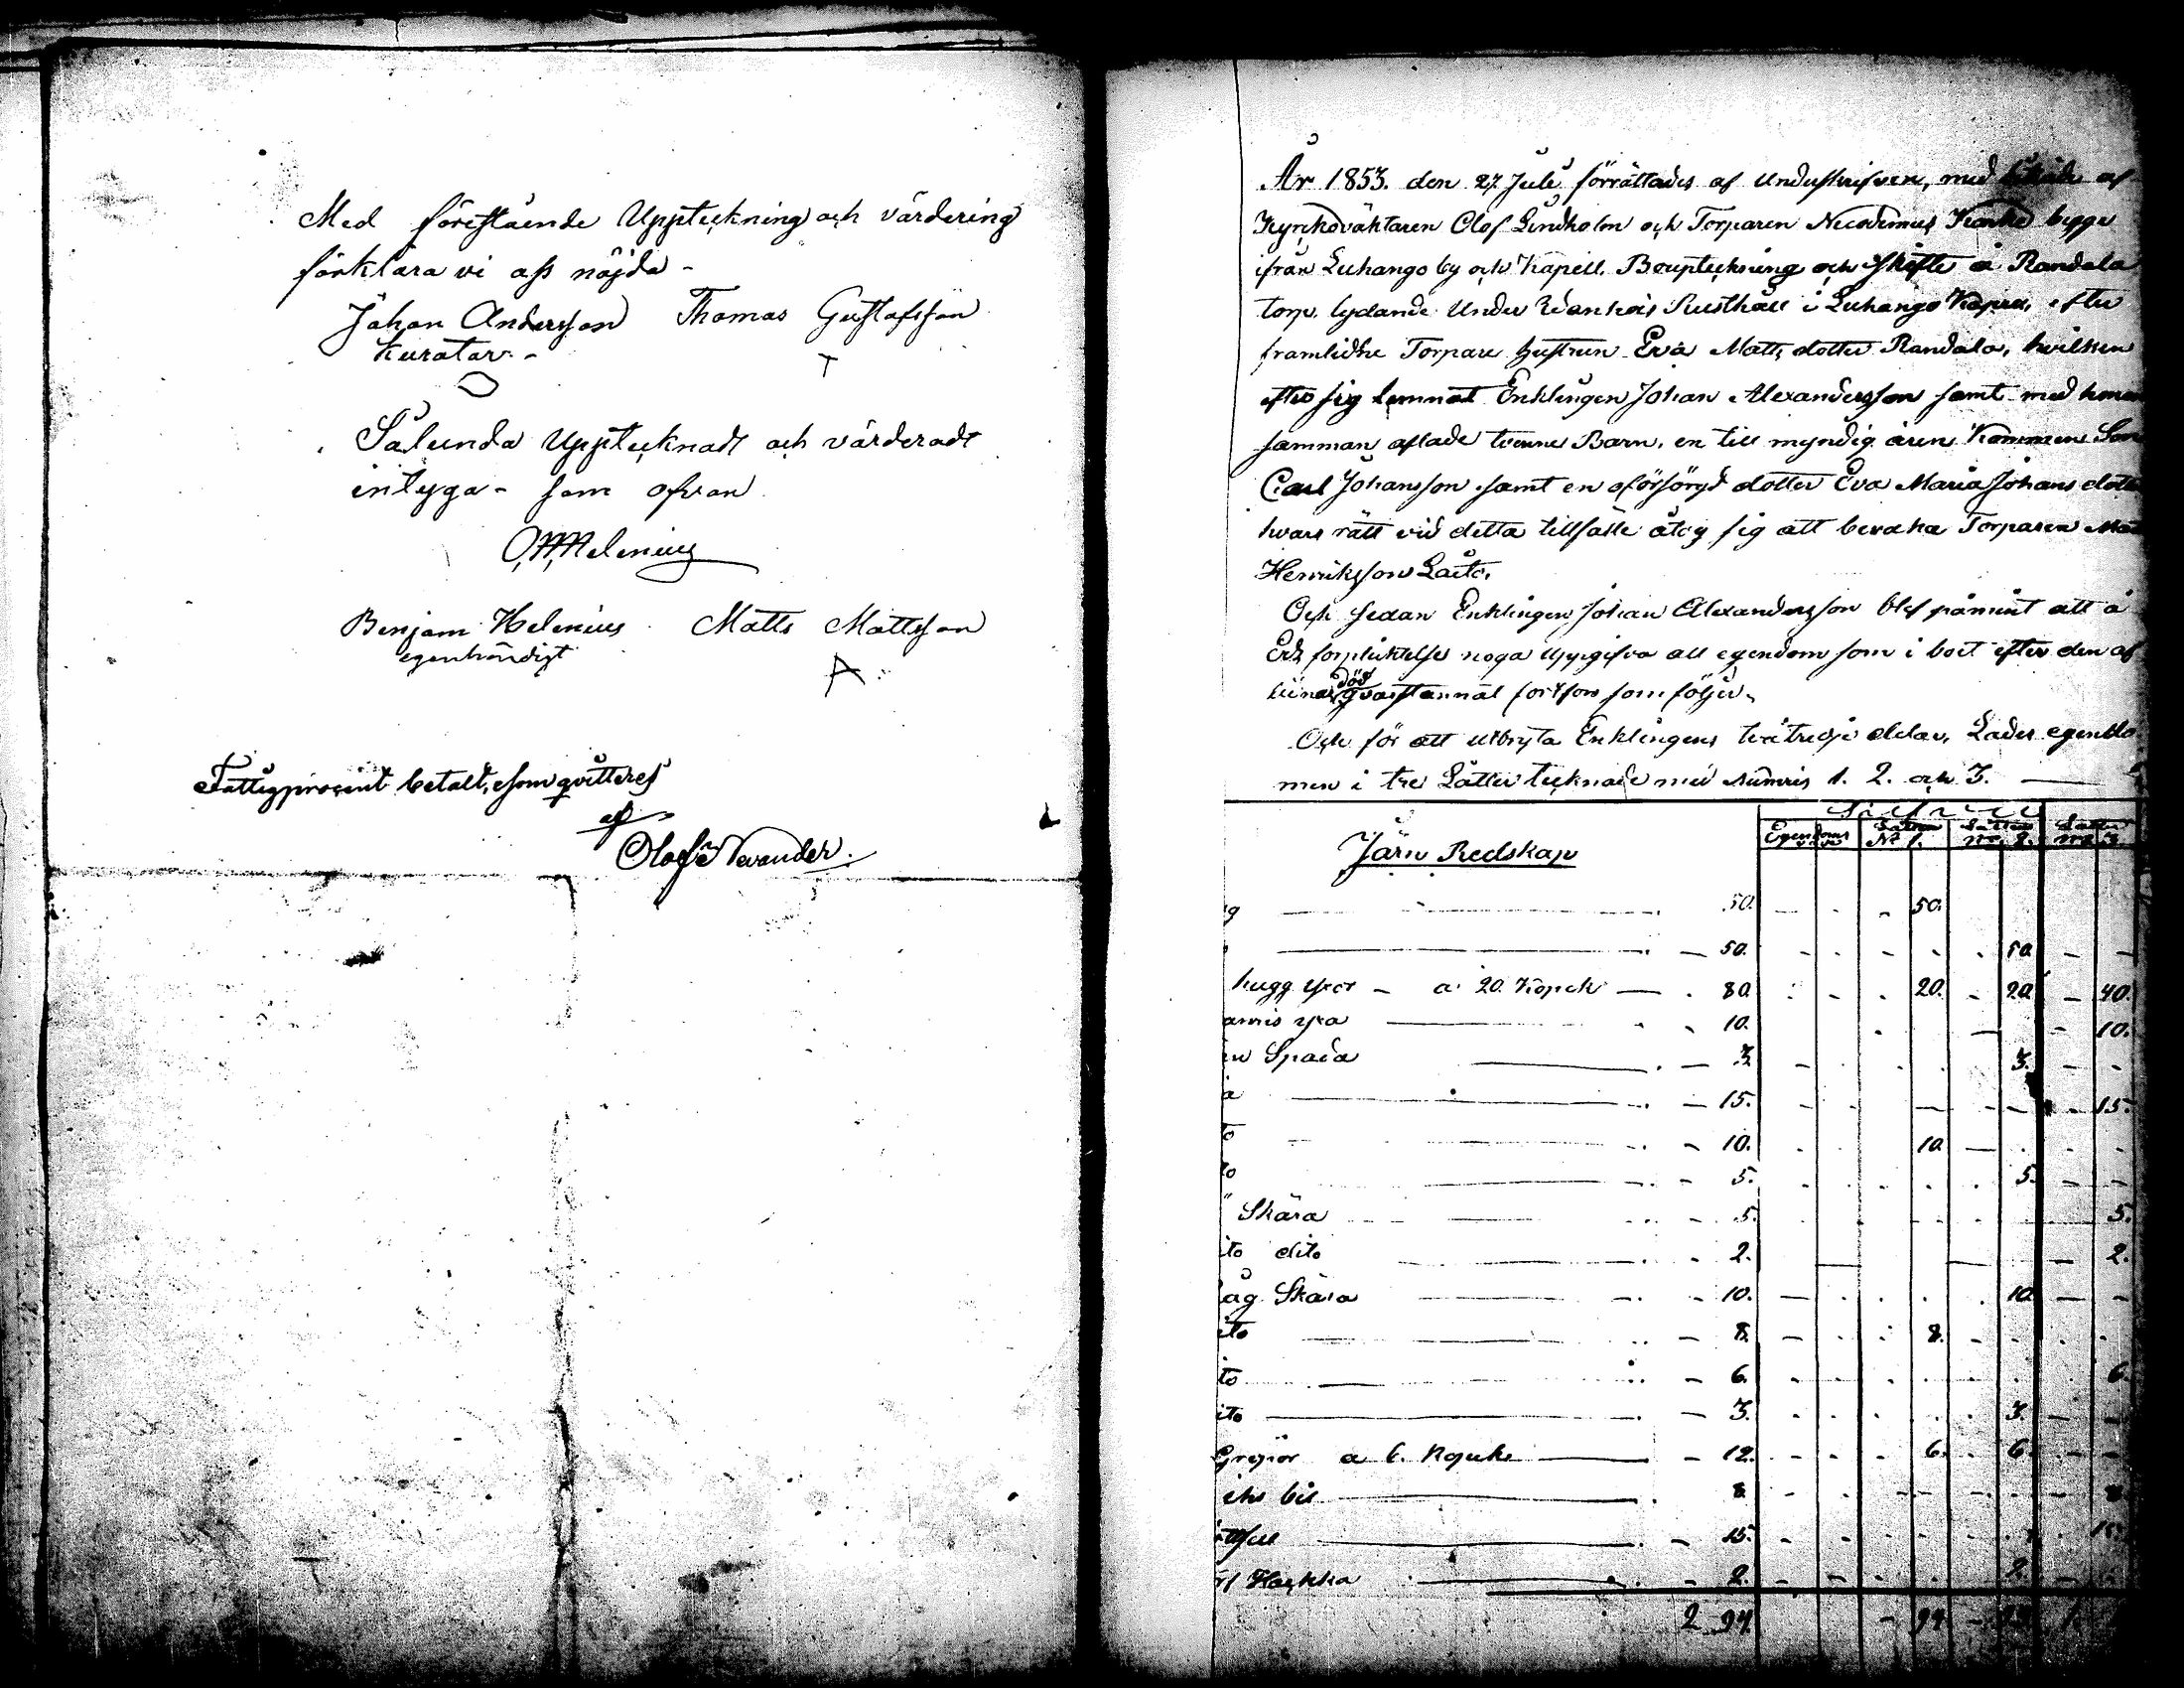 Med föreстående Uppteckning och värdering
förklara vi oss nöjda -
Johan Andersson Thomas Gustafsson
Kurator -
Sålunda Upptecknadt och värderadt
intyga - som ofvan
Helenius
Benjam Helenius Matts Mattsson
egenhändigt
Fattigprocent betalt, som qvitteras
af
Olof Nevander
År 1853. den 27 Juli förrättades af Unduskrifven, med af
Kyrkoväktaren Olof Lindholm och Torparen Nicodemus begge
ifrån Luhango by och Kapell. Boupteckning och Skifte å Randala
torp. lydande Under Rusthåll i Luhango Kapell, efter
framlidne Torpare hustrun Eva Matts dotter Randala, hvilken
efter sig lemnat Enklingen Johan Alexandersson samt med honom
samman aflade tvenne Barn, en till myndig åren Kommen Son
Carl Johansson samt en oförsörgd dotter Eva Maria Johans dotter
hvars rätt vid detta tillfälle åtog sig att bevaka Torparen
Henriksson
Och sedan Enklingen Johan Alexandersson blef påmint att å
Eds förpliktelse noga Uppgifva all egendom som i boet efter den af
död
qvarstannat som följer.
Och för att Utbryta Enklingens två tredje delar, Lades egendo
men i tre Låtter tecknade med Numris 1. 2. och 3.
Järn Redskap
Egendoms Låtten No 1. Låtten No 2. Låtten No 3.
50. 50.
50. 50.
hugg yxor - a 20 Kopek 80. 20. 20. 40.
yxa 10. 10.
Spada 3. 3.
15. 15.
10. 10.
5. 5.
Skära 5. 5.
ito dito 2. 2.
Skära 10. 10.
ito 8. 8.
ito 6. 6.
ito 3. 3.
Grepor a 6. Kopek 12. 6. 6.
bil 8. 8.
15. 15.
Hackka 2. 2.
2 94. 94.